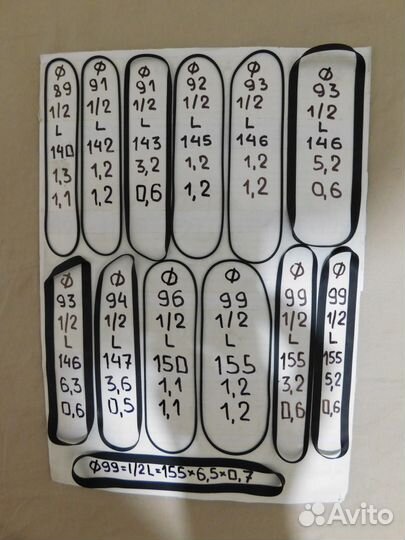 Ø
89
1/2
L
140
1,3
1,1
Ø
91
1/2
L
142
1,2
1,2
Ø
91
1/2
L
143
3,2
0,6
Ø
92
1/2
L
145
1,2
1,2
Ø
93
1/2
L
146
1,2
1,2
Ø
93
1/2
L
146
5,2
0,6
Ø
93
1/2
L
146
6,3
0,6
Ø
94
1/2
L
147
3,6
0,5
Ø
96
1/2
L
150
1,1
1,1
Ø
99
1/2
L
155
1,2
1,2
Ø
99
1/2
L
155
3,2
0,6
Ø
99
1/2
L
155
5,2
0,6
Ø99=1/2L=155×6,5×0,7
Avito